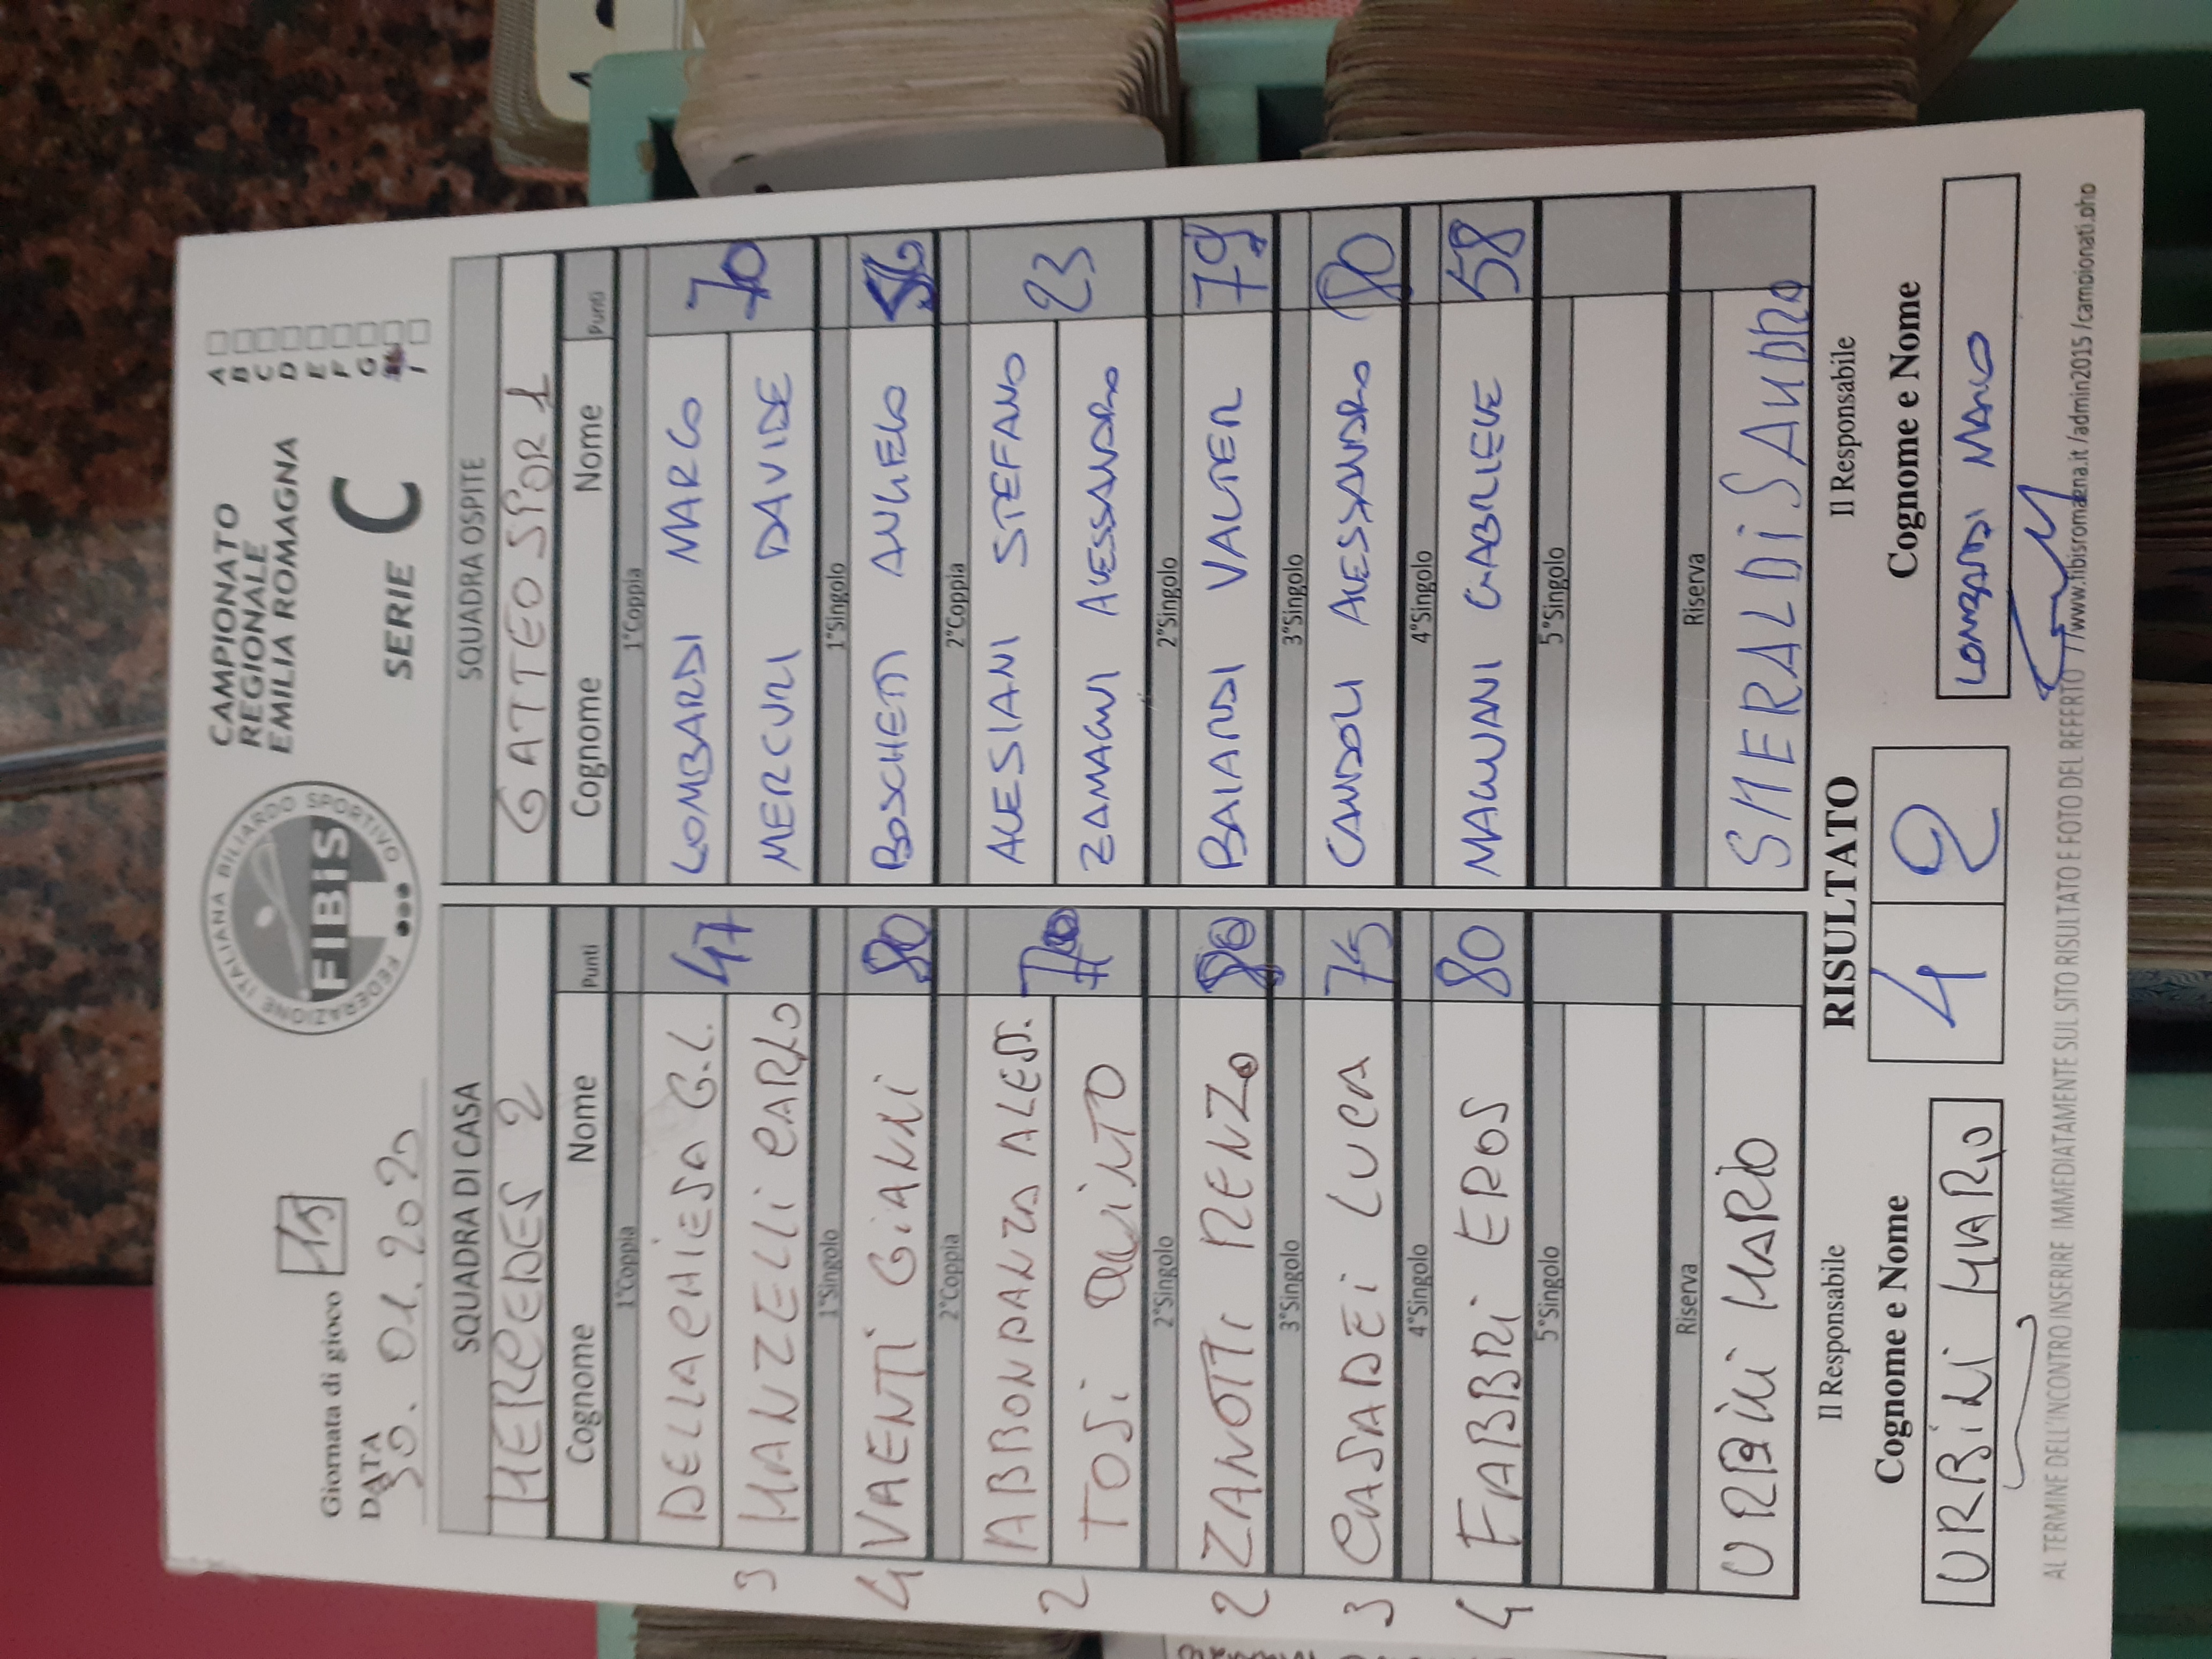 Giornata di gioco 15
DATA
30.01.2020
FEDERAZIONE ITALIANA BILIARDO SPORTIVO
FIBIS
CAMPIONATO
REGIONALE
EMILIA ROMAGNA
SERIE C
A
B
C
D
E
F
G
I
SQUADRA DI CASA
MERCEDES 2
Cognome Nome Punti
1°Coppia
DELLACHIESA G.L. 47
3 MANZELLI CARLO
1°Singolo
4 VAENTI GIANNI 80
2°Coppia
ABBONDANZA ALESS. 70
2 TOSI QUINTO
2°Singolo
2 ZANOTTI RENZO 80
3°Singolo
3 CASADEI LUCA 75
4°Singolo
4 FABBRI EROS 80
5°Singolo
Riserva
URBINI MARIO
SQUADRA OSPITE
GATTEO SPOR 1
Cognome Nome Punti
1°Coppia
LOMBARDI MARCO 70
MERCURI DAVIDE
1°Singolo
BOSCHETTI ANGELO 56
2°Coppia
ALESIANI STEFANO 23
ZAMAGNI ALESSANDRO
2°Singolo
BAIARDI VALTER 79
3°Singolo
CANDOLI ALESSANDRO 80
4°Singolo
MAGNANI GABRIELE 58
5°Singolo
Riserva
SMERALDI SAURO
Il Responsabile RISULTATO Il Responsabile
Cognome e Nome 4 2 Cognome e Nome
URBINI MARIO LOMBARDI MARCO
AL TERMINE DELL'INCONTRO INSERIRE IMMEDIATAMENTE SUL SITO RISULTATO E FOTO DEL REFERTO //www.fibisromagna.it/admin2015/campionati.php